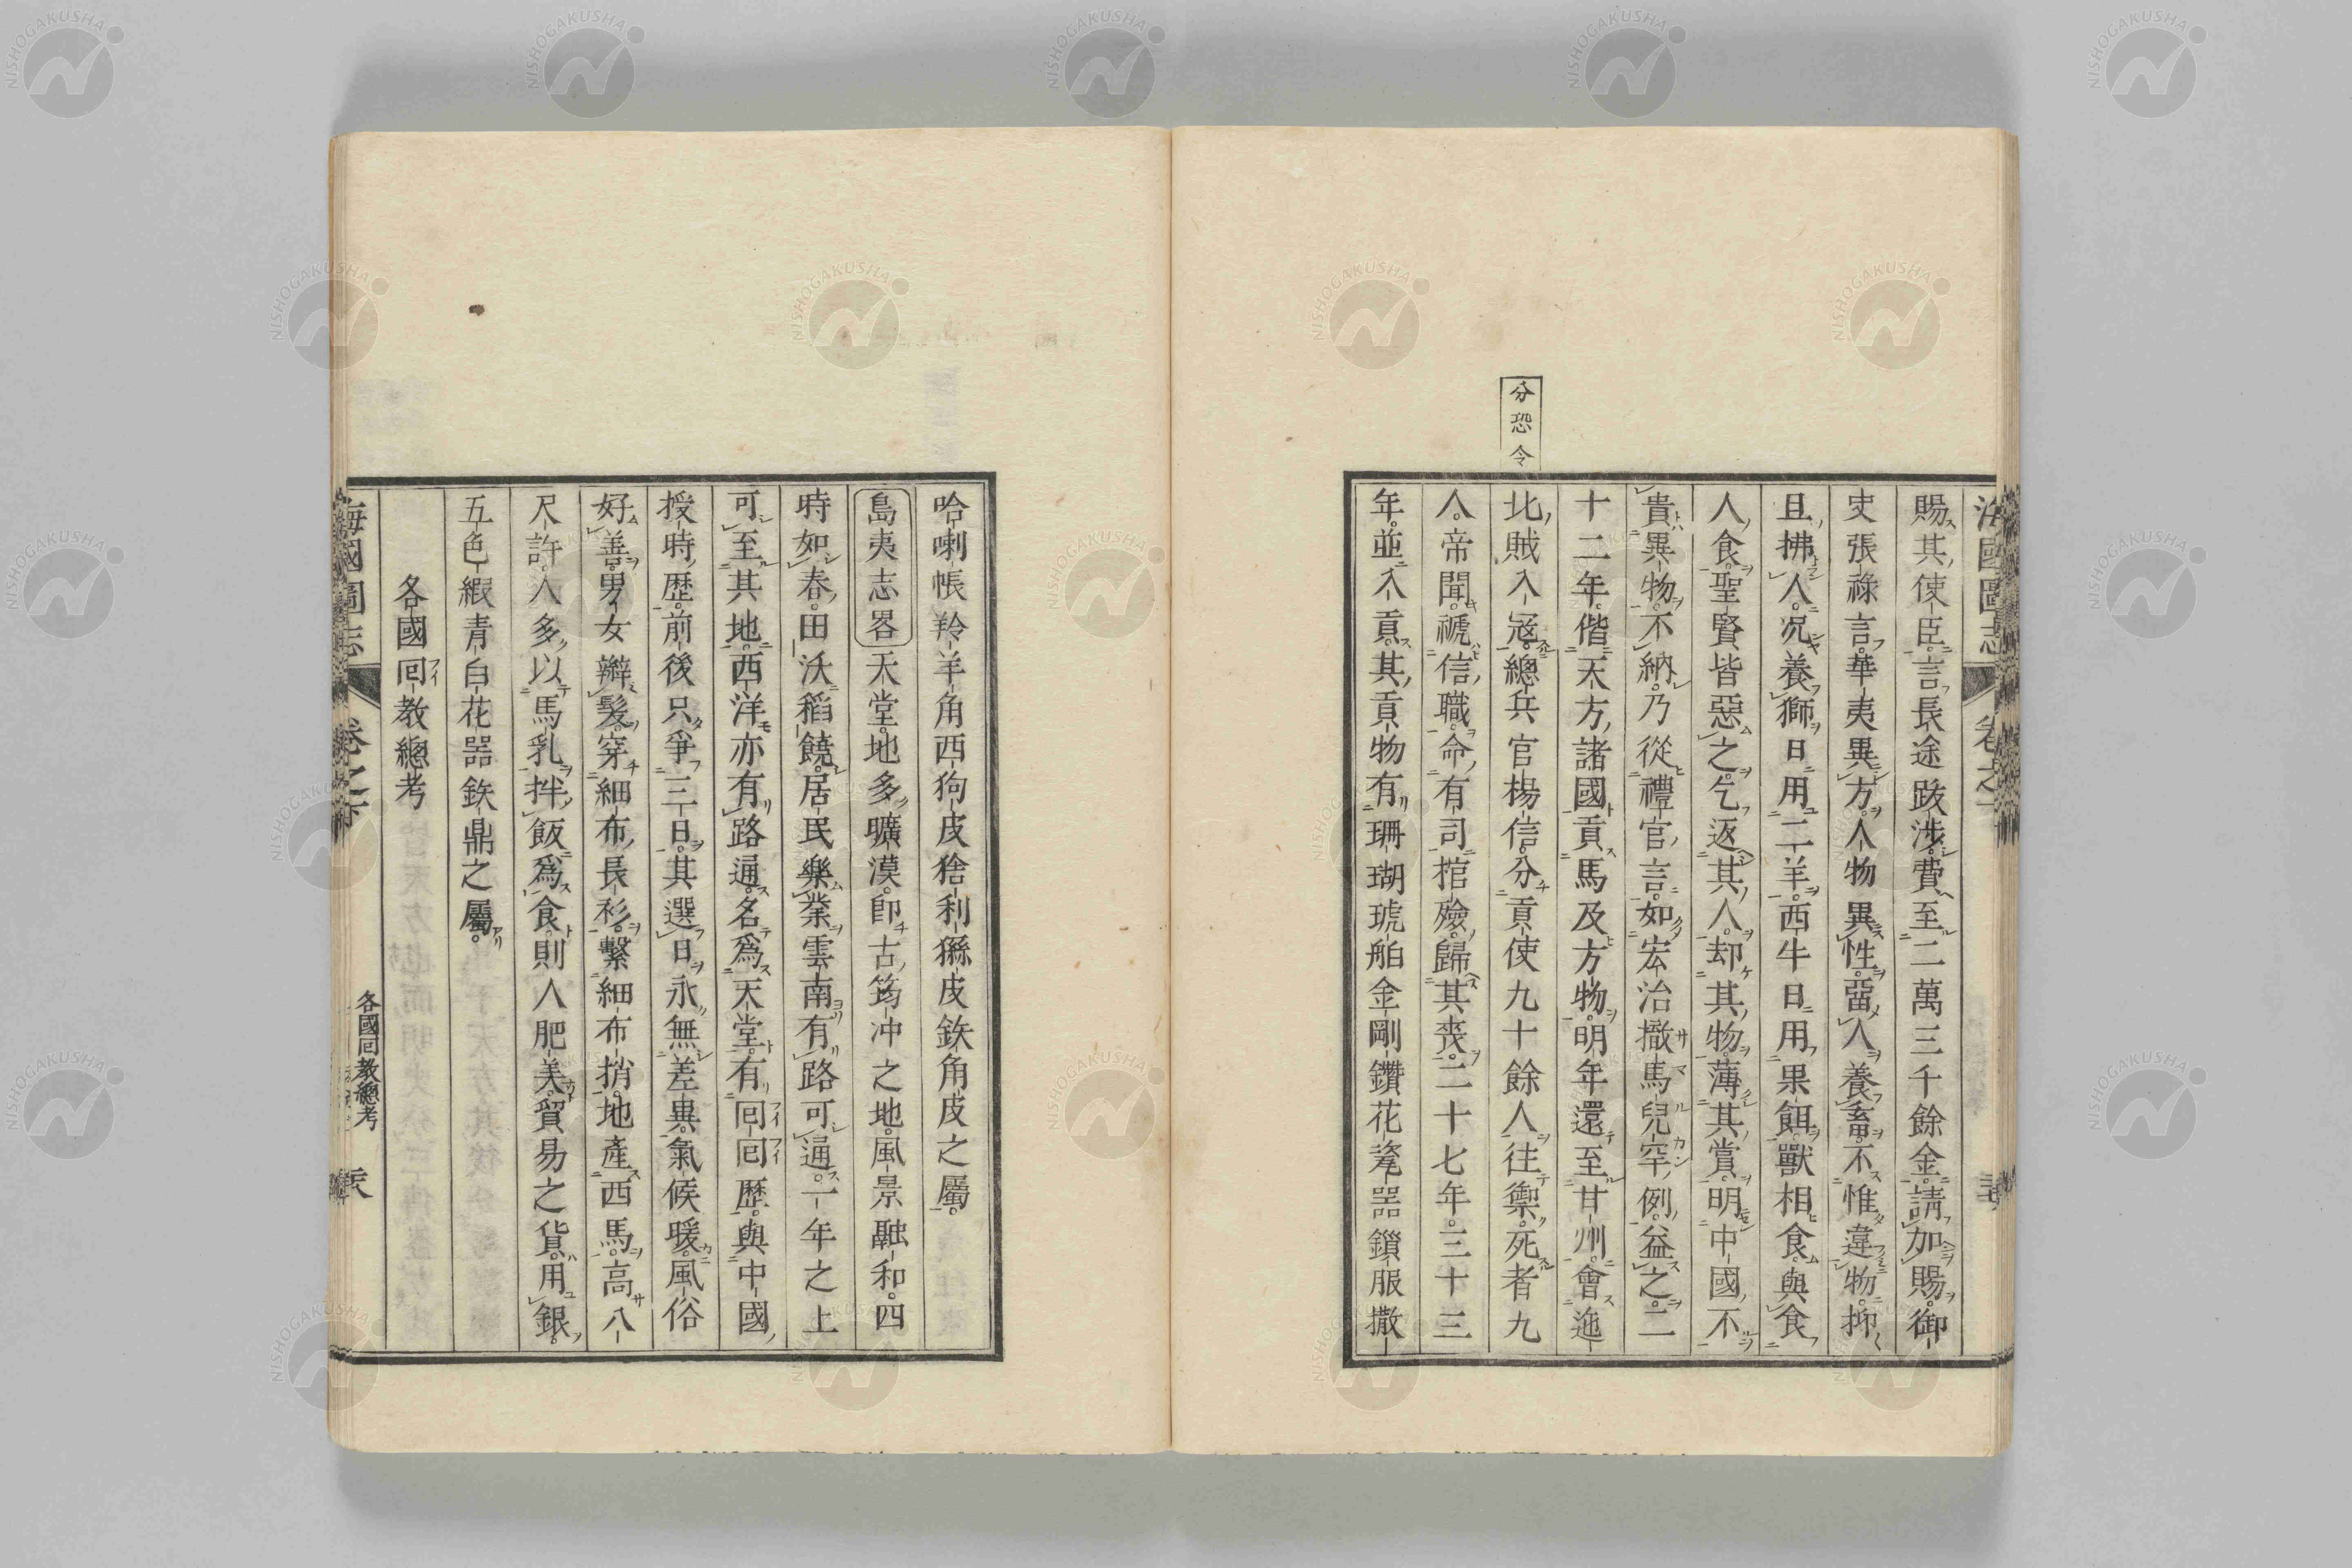 海國圖志
賜其使臣言長途跋涉費至二萬三千餘金請加賜御
史張祿言華夷異方人物異性畱人養畜不惟違物抑
且拂人況養獅日用二羊西牛日用果餌獸相食與食
人食聖賢皆惡之乞返其人却其物薄其賞明中國不
貴異物不納乃從禮官言如宏治撒馬兒罕例益之二
十二年偕天方諸國貢馬及方物明年還至甘州會迤
分恐令
北賊入寇總兵官楊信分貢使九十餘人往禦死者九
人帝聞禠信職命有司棺殮歸其喪二十七年三十三
年並入貢其貢物有珊瑚琥珀金剛鑽花瓷器鎖服撒
哈喇帳羚羊角西狗皮猞利猻皮鉄角皮之屬
島夷志畧天堂地多曠漠即古筠冲之地風景融和四
時如春田沃稻饒居民樂業雲南有路可通一年之上
可至其地西洋亦有路通名爲天堂有囘囘歷與中國
授時歷前後只爭三日其選日永無差異氣候暖風俗
好善男女辮髮穿細布長衫繫細布捎地產西馬高八
尺許人多以馬乳拌飯爲食則人肥美貿易之貨用銀
五色緞青白花器鉄鼎之屬
各國囘教總考
海國圖志
各國囘教總考
NISHOGAKUSHA